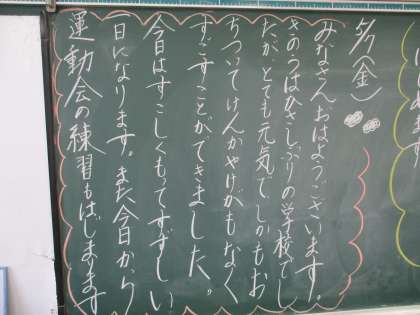 9/1(金)
みなさんおはようございます。
きのうはひさしぶりの学校でし
たが、とても元気で、しかもお
ちついてけんかやけがもなく
すごすことができました。
今日はすこしくもってすずしい
一日になります。また今日から
運動会の練習もはじまります